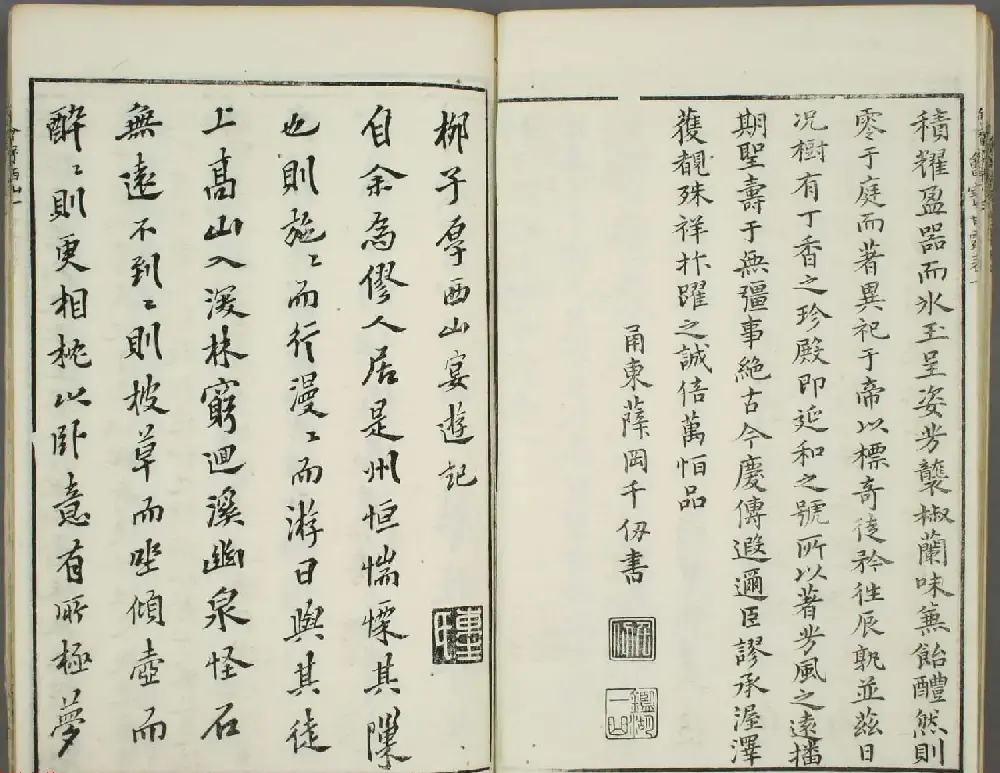 積耀盈器而氷玉呈姿芳襲椒蘭味蕪飴醴然則
零于庭而著異祀于帝以標奇徒矜徃辰孰並茲日
况樹有丁香之珍殿即延和之號所以著芳風之遠播
期聖壽于無彊事絶古今慶傳遐邇臣謬承渥澤
獲覩殊祥抃躍之誠倍萬怕品
甬東薩岡千仞書
鑑湖一曲
栁子厚西山宴遊記
自余為僇人居是州恒惴慄其隟
也則施〻而行漫〻而游日與其徒
上髙山入深林窮迴溪幽泉怪石
無遠不到〻則披草而坐傾壺而
醉〻則更相枕以卧意有所極夢